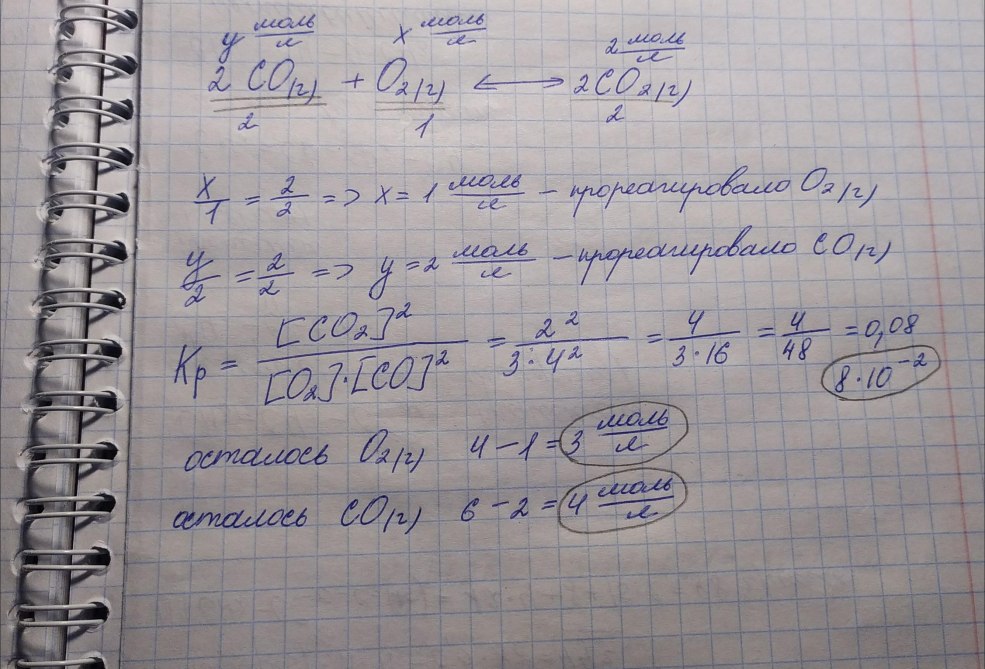 y моль/л x моль/л 2 моль/л
2 CO(г) + O₂(г) ⟷ 2CO₂(г)
2 1 2
x/1 = 2/2 => x = 1 моль/л – прореагировало O₂(г)
y/2 = 2/2 => y = 2 моль/л – прореагировало CO(г)
Kр = [CO₂]²/[O₂]·[CO]² = 2²/3·4² = 4/3·16 = 4/48 = 0,08
8·10⁻²
осталось O₂(г) 4 – 1 = 3 моль/л
осталось CO(г) 6 – 2 = 4 моль/л